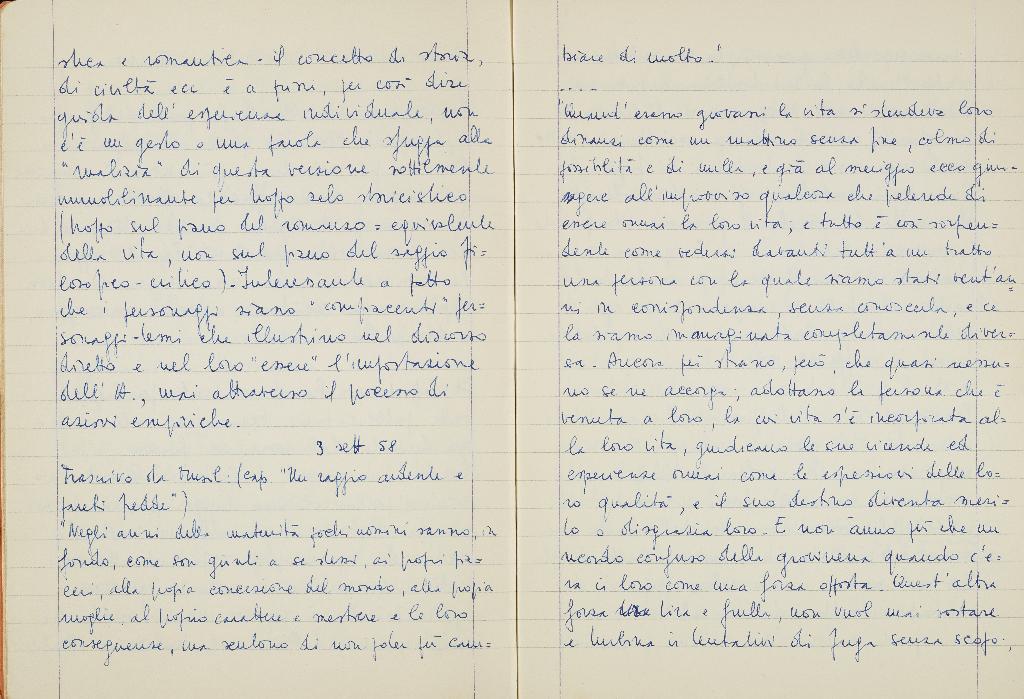 stica e romantica. Il concetto di storia,
di civiltà ecc è a priori, per così dire
guida dell'esperienza individuale, non
c'è un gesto o una parola che sfugga alla
"malizia" di questa versione sottilmente
immobilizzante per troppo zelo storicistico
(troppo sul piano del romanzo = equivalente
della vita, non sul piano del saggio fi=
losofico-critico). Interessante il fatto
che i personaggi siano "compiacenti" per=
sonaggi-temi che illustrino nel discorso
diretto e nel loro "essere" l'impostazione
dell'A., mai attraverso il processo di
azioni empiriche.
3 sett 58
Trascrivo da Musil: (cap "Un raggio ardente e
pareti fredde")
"Negli anni della maturità pochi uomini sanno, in
fondo, come son giunti a se stessi, ai propri pia=
ceri, alla propria concezione del mondo, alla propria
moglie, al proprio carattere e mestiere e le loro
conseguenze, ma sentono di non poter più cam=
biare di molto."
....
"Quand'erano giovani la vita si stendeva loro
dinanzi come un mattino senza fine, colmo di
possibilità e di nulla, e già al meriggio ecco giun=
gere all'improvviso qualcosa che pretende di
essere ormai la loro vita; e tutto è così sorpren=
dente come vedersi davanti tutt'a un tratto
una persona con la quale siamo stati vent'an=
ni in corrispondenza, senza conoscerla, e ce
la siamo immaginata completamente diver=
sa. Ancora più strano, però, che quasi nessu=
no se ne accorga; adottano la persona che è
venuta a loro, la cui vita s'è incorporata al=
la loro vita, giudicano le sue vicende ed
esperienze ormai come le espressioni delle lo=
ro qualità, e il suo destino diventa meri=
to o disgrazia loro. E non ànno più che un
ricordo confuso della giovinezza quando c'e=
ra in loro come una forza opposta. Quest'altra
forza tira e frulla, non vuol mai sostare
e turbina in tentativi di fuga senza scopo;